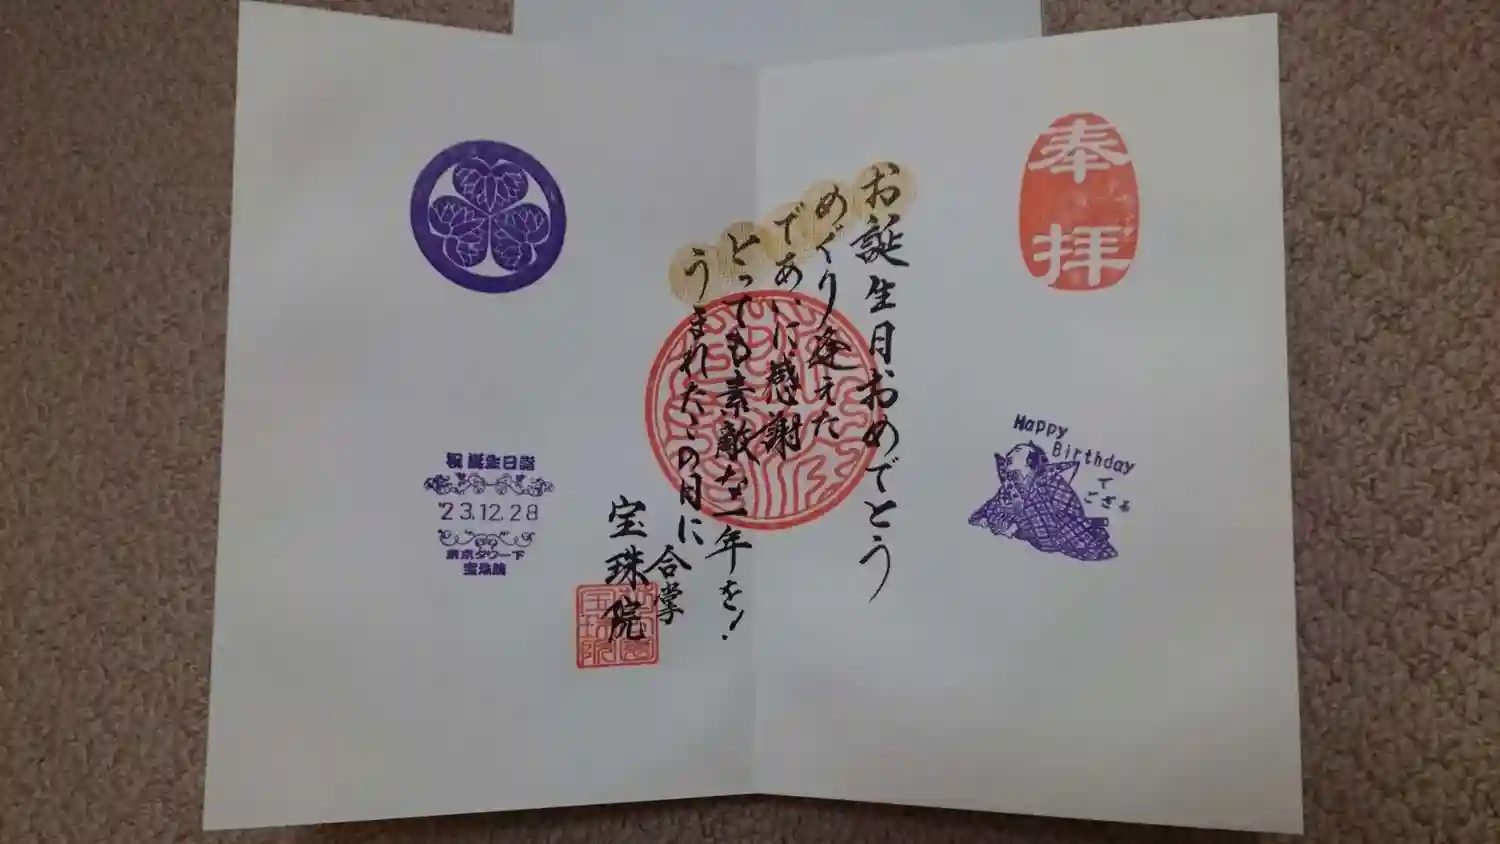 奉拝
Happy
Birthday
で
ござる
お誕生日おめでとう
めぐり逢えた
であいに感謝
とっても素敵な一年を!
うまれたこの日に
合掌
宝珠院
祝誕生日詣
'23.12.28
東京タワー下
宝珠院